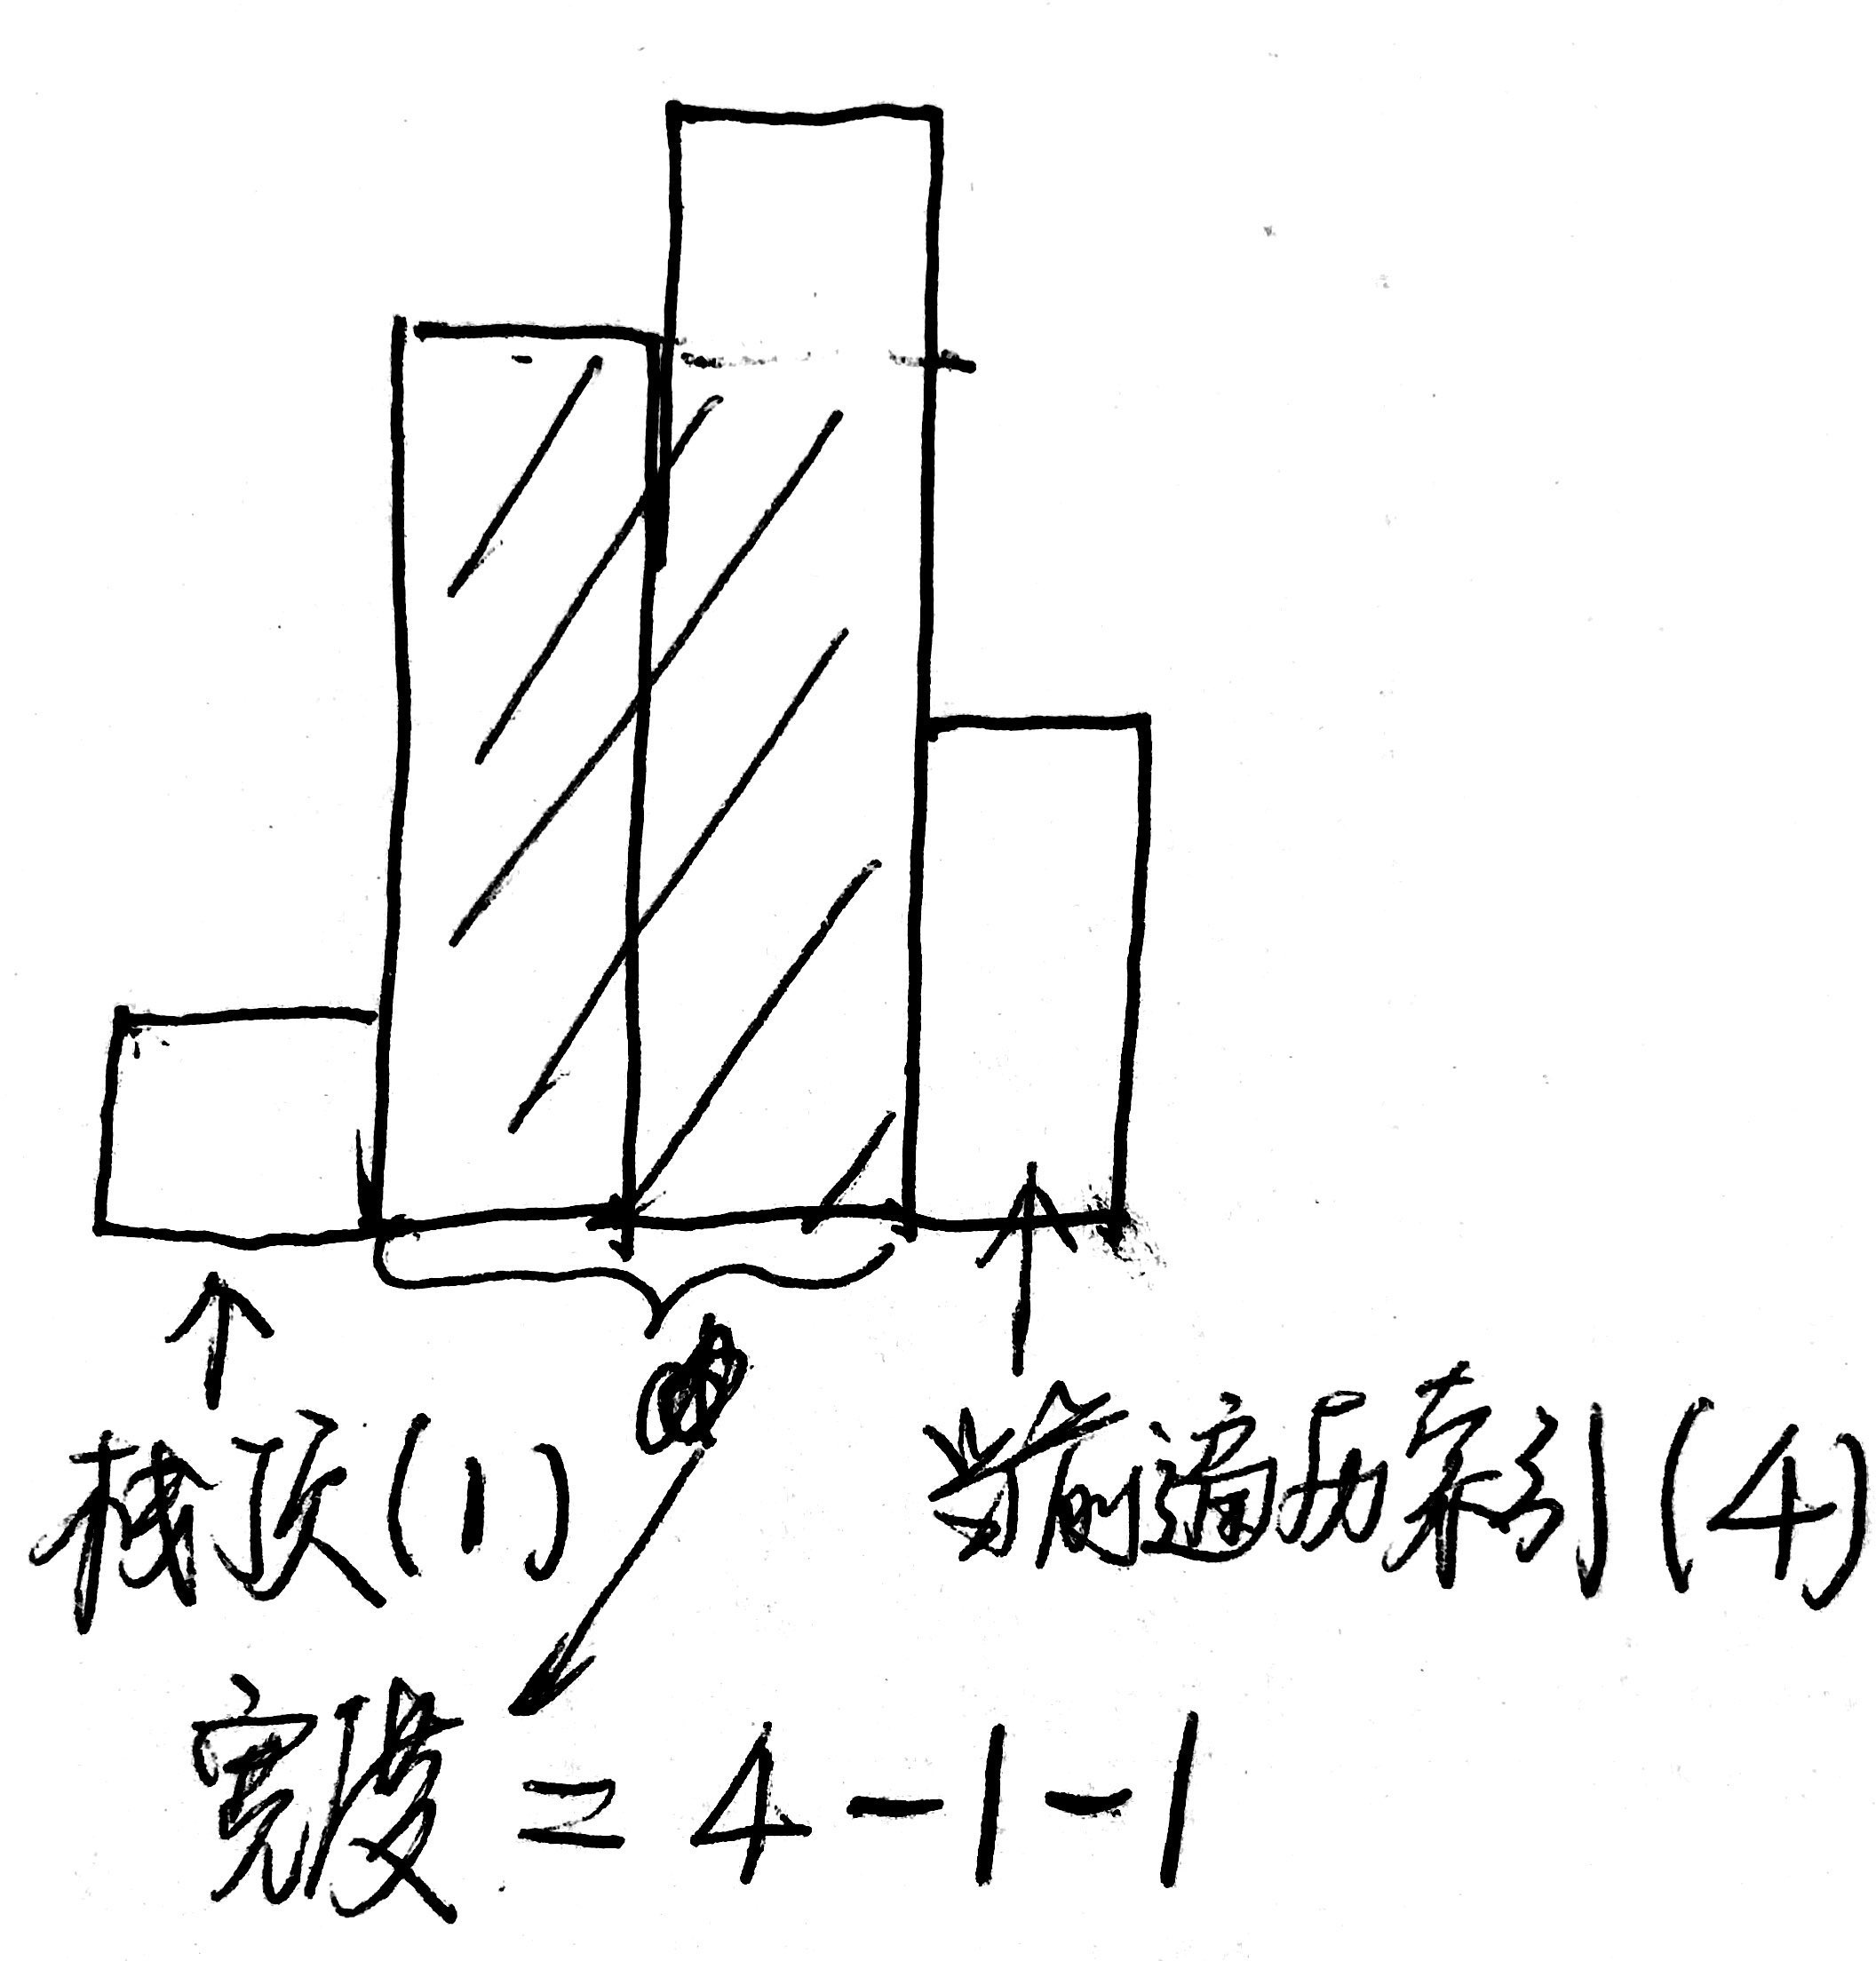 栈顶(1) 当前遍历索引(4)
宽度=4-1-1